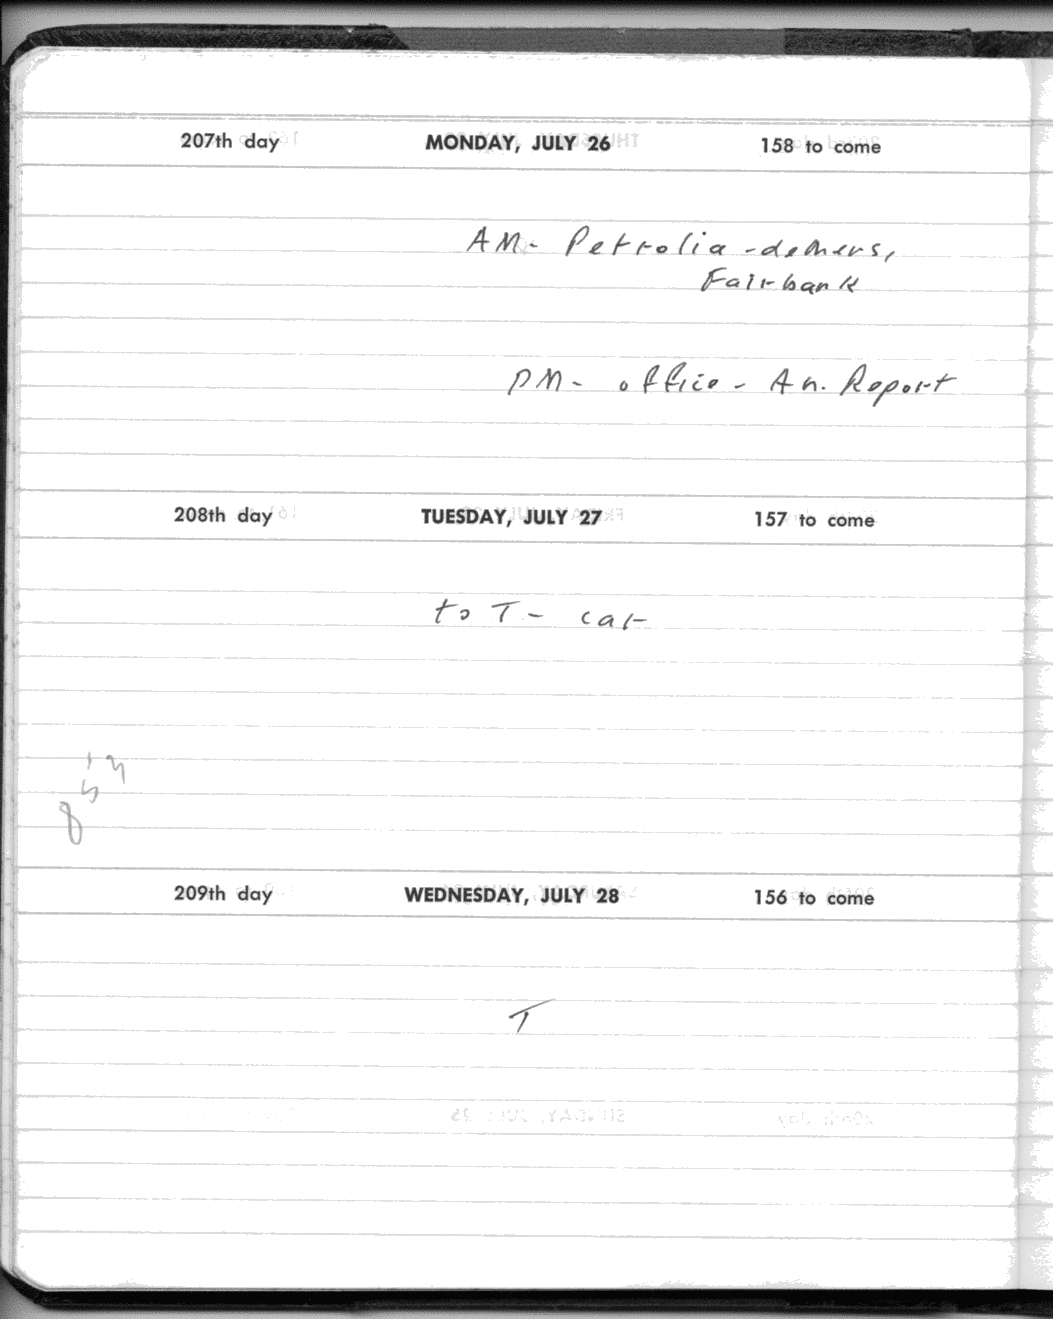 207th day MONDAY, JULY 26 158 to come
AM- Petrolia - demers,
Fairbank
PM- office - An. Report
208th day TUESDAY, JULY 27 157 to come
to T - car
209th day WEDNESDAY, JULY 28 156 to come
T